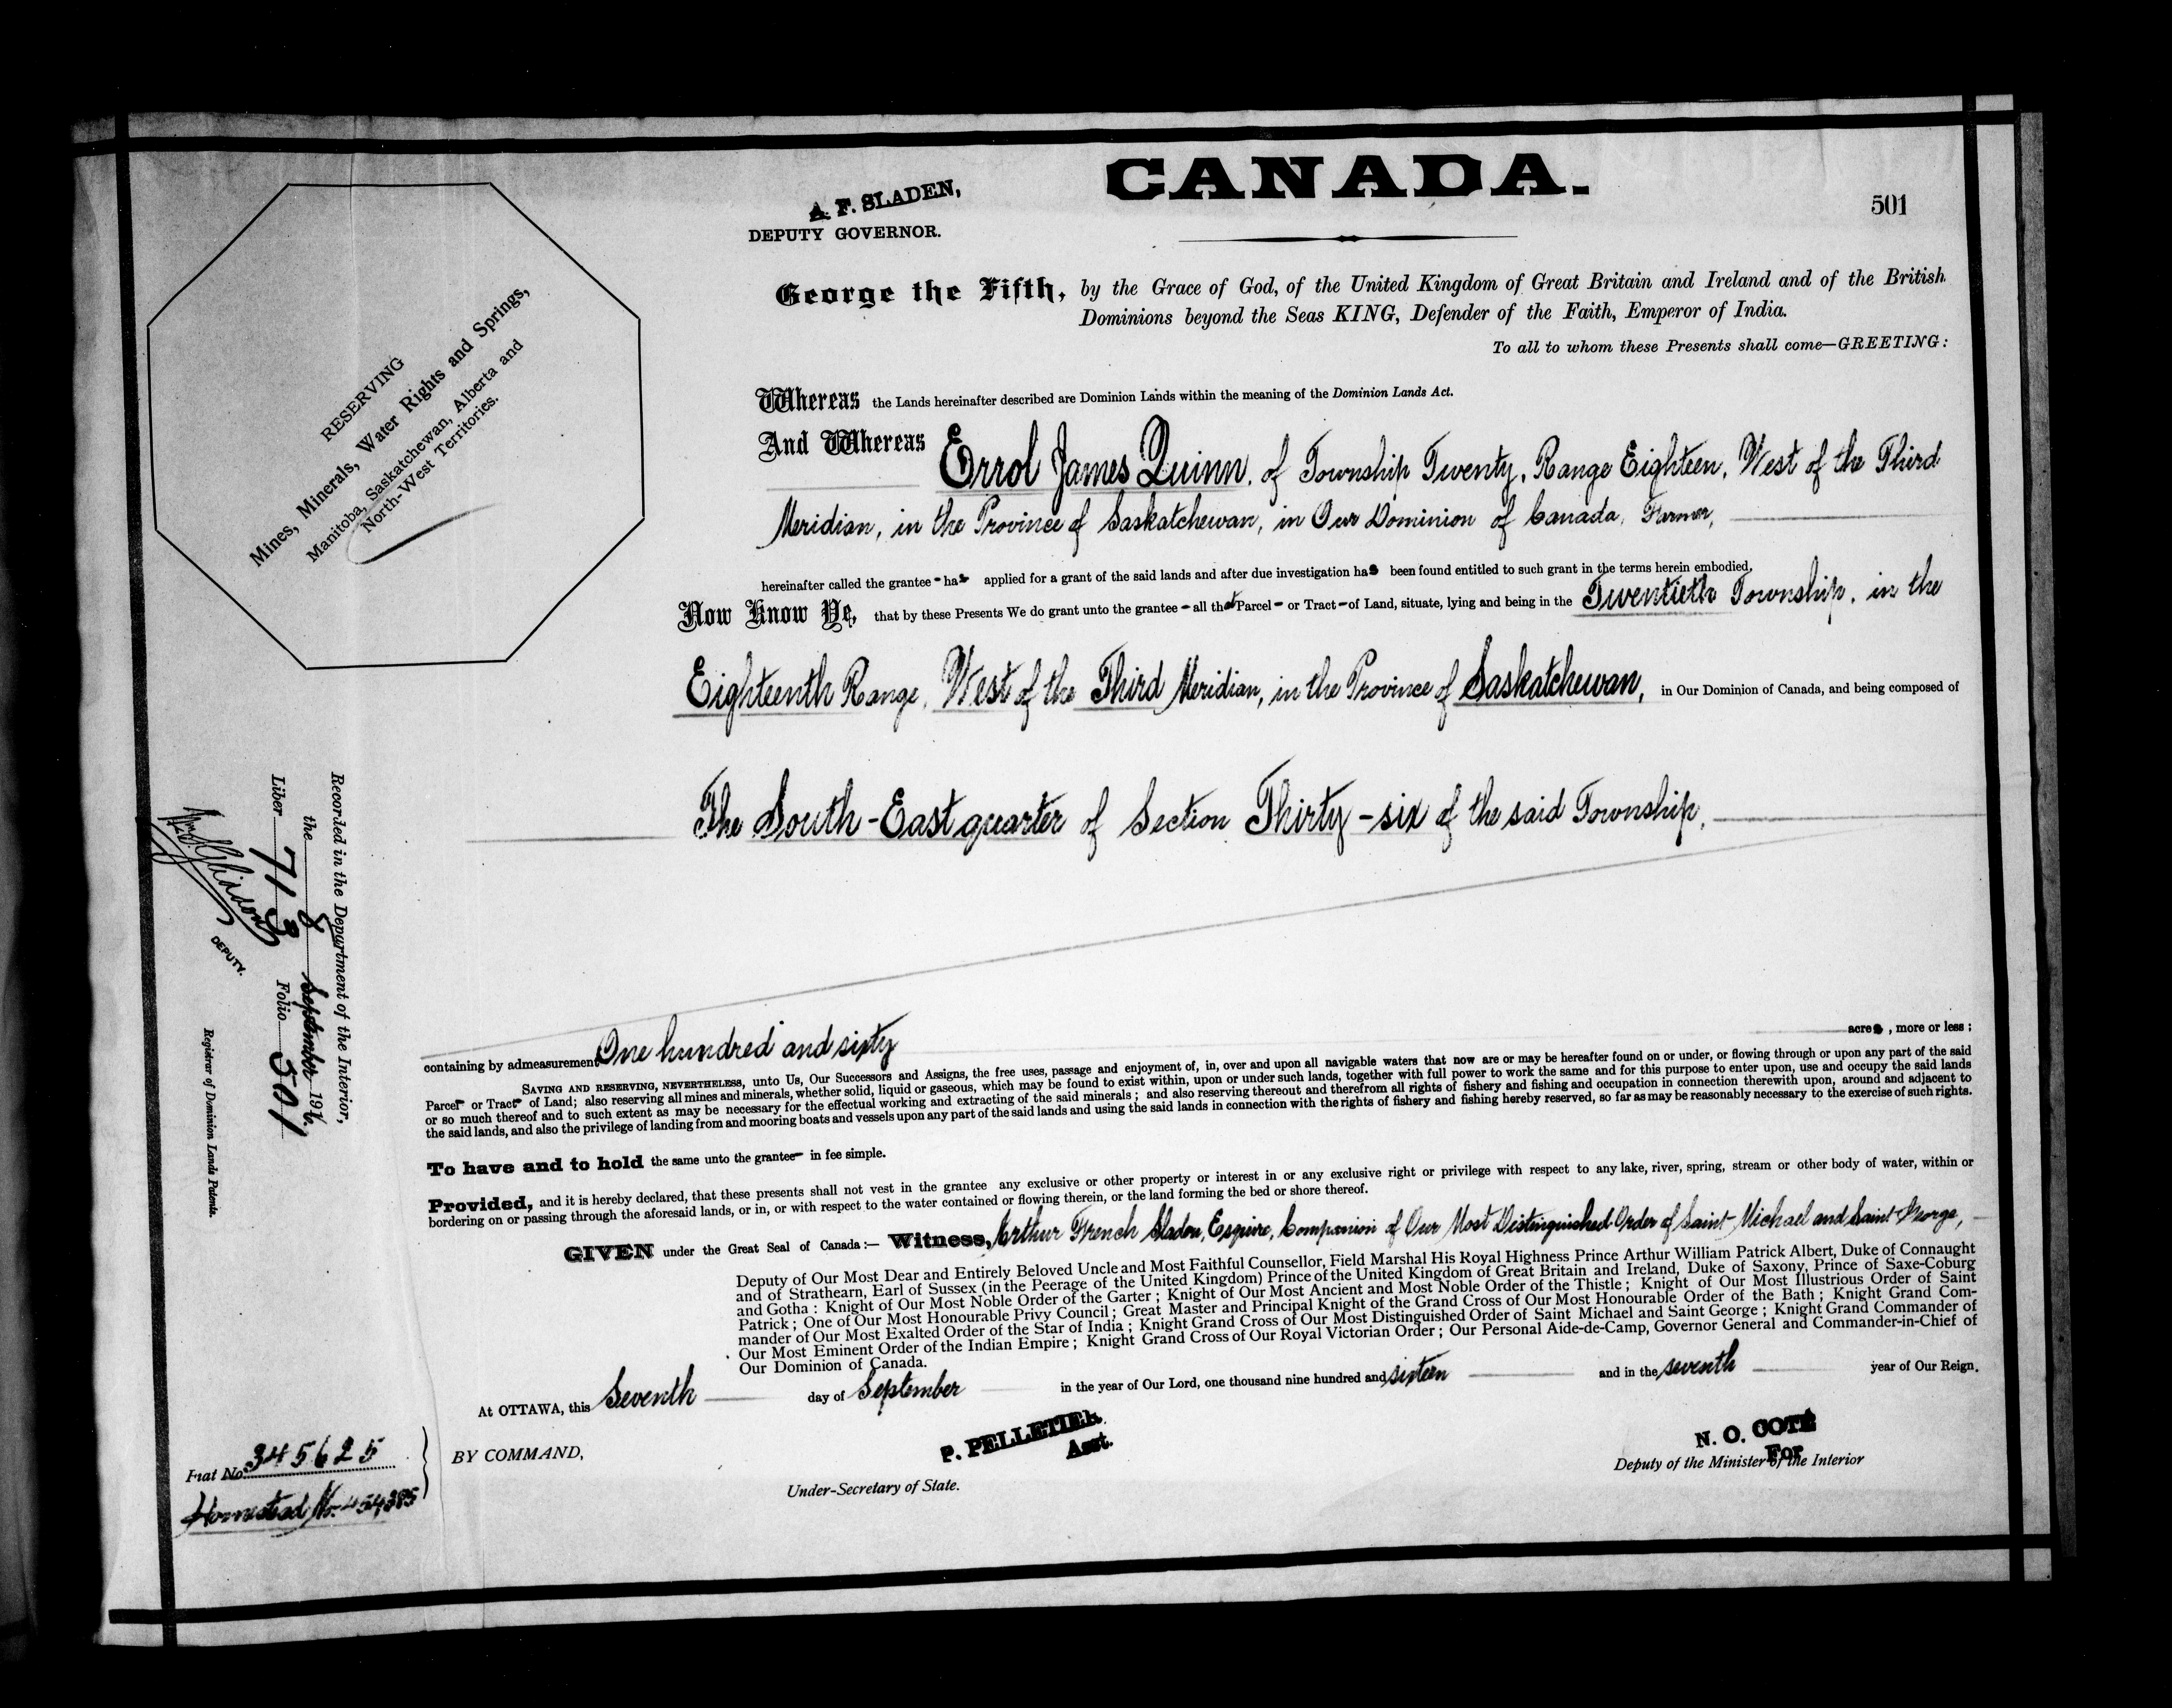 CANADA.
501
A. F. SLADEN,
DEPUTY GOVERNOR.
George the Fifth, by the Grace of God, of the United Kingdom of Great Britain and Ireland and of the British
Dominions beyond the Seas KING, Defender of the Faith, Emperor of India.
To all to whom these Presents shall come—GREETING:
RESERVING
Mines, Minerals, Water Rights and Springs,
Manitoba, Saskatchewan, Alberta and
North-West Territories.
Whereas the Lands hereinafter described are Dominion Lands within the meaning of the Dominion Lands Act.
And Whereas Errol James Quinn, of Township Twenty, Range Eighteen, West of the Third
Meridian, in the Province of Saskatchewan, in Our Dominion of Canada, Farmer,
hereinafter called the grantee - has applied for a grant of the said lands and after due investigation has been found entitled to such grant in the terms herein embodied,
Now Know Ye, that by these Presents We do grant unto the grantee - all that Parcel - or Tract - of Land, situate, lying and being in the Twentieth Township, in the
Eighteenth Range, West of the Third Meridian, in the Province of Saskatchewan, in Our Dominion of Canada, and being composed of
The South-East quarter of Section Thirty-six of the said Township,
containing by admeasurement One hundred and sixty acres, more or less;
SAVING AND RESERVING, NEVERTHELESS, unto Us, Our Successors and Assigns, the free uses, passage and enjoyment of, in, over and upon all navigable waters that now are or may be hereafter found on or under, or flowing through or upon any part of the said
Parcel- or Tract- of Land; also reserving all mines and minerals, whether solid, liquid or gaseous, which may be found to exist within, upon or under such lands, together with full power to work the same and for this purpose to enter upon, use and occupy the said lands
or so much thereof and to such extent as may be necessary for the effectual working and extracting of the said minerals; and also reserving thereout and therefrom all rights of fishery and fishing and occupation in connection therewith upon, around and adjacent to
the said lands, and also the privilege of landing from and mooring boats and vessels upon any part of the said lands and using the said lands in connection with the rights of fishery and fishing hereby reserved, so far as may be reasonably necessary to the exercise of such rights.
To have and to hold the same unto the grantee- in fee simple.
Provided, and it is hereby declared, that these presents shall not vest in the grantee any exclusive or other property or interest in or any exclusive right or privilege with respect to any lake, river, spring, stream or other body of water, within or
bordering on or passing through the aforesaid lands, or in, or with respect to the water contained or flowing therein, or the land forming the bed or shore thereof.
GIVEN under the Great Seal of Canada:— Witness, Arthur French Sladen, Esquire, Companion of Our Most Distinguished Order of Saint Michael and Saint George,
Deputy of Our Most Dear and Entirely Beloved Uncle and Most Faithful Counsellor, Field Marshal His Royal Highness Prince Arthur William Patrick Albert, Duke of Connaught
and of Strathearn, Earl of Sussex (in the Peerage of the United Kingdom) Prince of the United Kingdom of Great Britain and Ireland, Duke of Saxony, Prince of Saxe-Coburg
and Gotha: Knight of Our Most Noble Order of the Garter; Knight of Our Most Ancient and Most Noble Order of the Thistle; Knight of Our Most Illustrious Order of Saint
Patrick; One of Our Most Honourable Privy Council; Great Master and Principal Knight of the Grand Cross of Our Most Honourable Order of the Bath; Knight Grand Com-
mander of Our Most Exalted Order of the Star of India; Knight Grand Cross of Our Most Distinguished Order of Saint Michael and Saint George; Knight Grand Commander of
Our Most Eminent Order of the Indian Empire; Knight Grand Cross of Our Royal Victorian Order; Our Personal Aide-de-Camp, Governor General and Commander-in-Chief of
Our Dominion of Canada.
At OTTAWA, this Seventh day of September in the year of Our Lord, one thousand nine hundred and sixteen and in the seventh year of Our Reign.
BY COMMAND,
P. PELLETIER.
Asst.
Under-Secretary of State.
N. O. COTÉ
For
Deputy of the Minister of the Interior
Recorded in the Department of the Interior,
the 8 September 1916.
Liber 713 Folio 501
DEPUTY.
Registrar of Dominion Lands Patents.
Fiat No. 345625
Homestead No. 454385